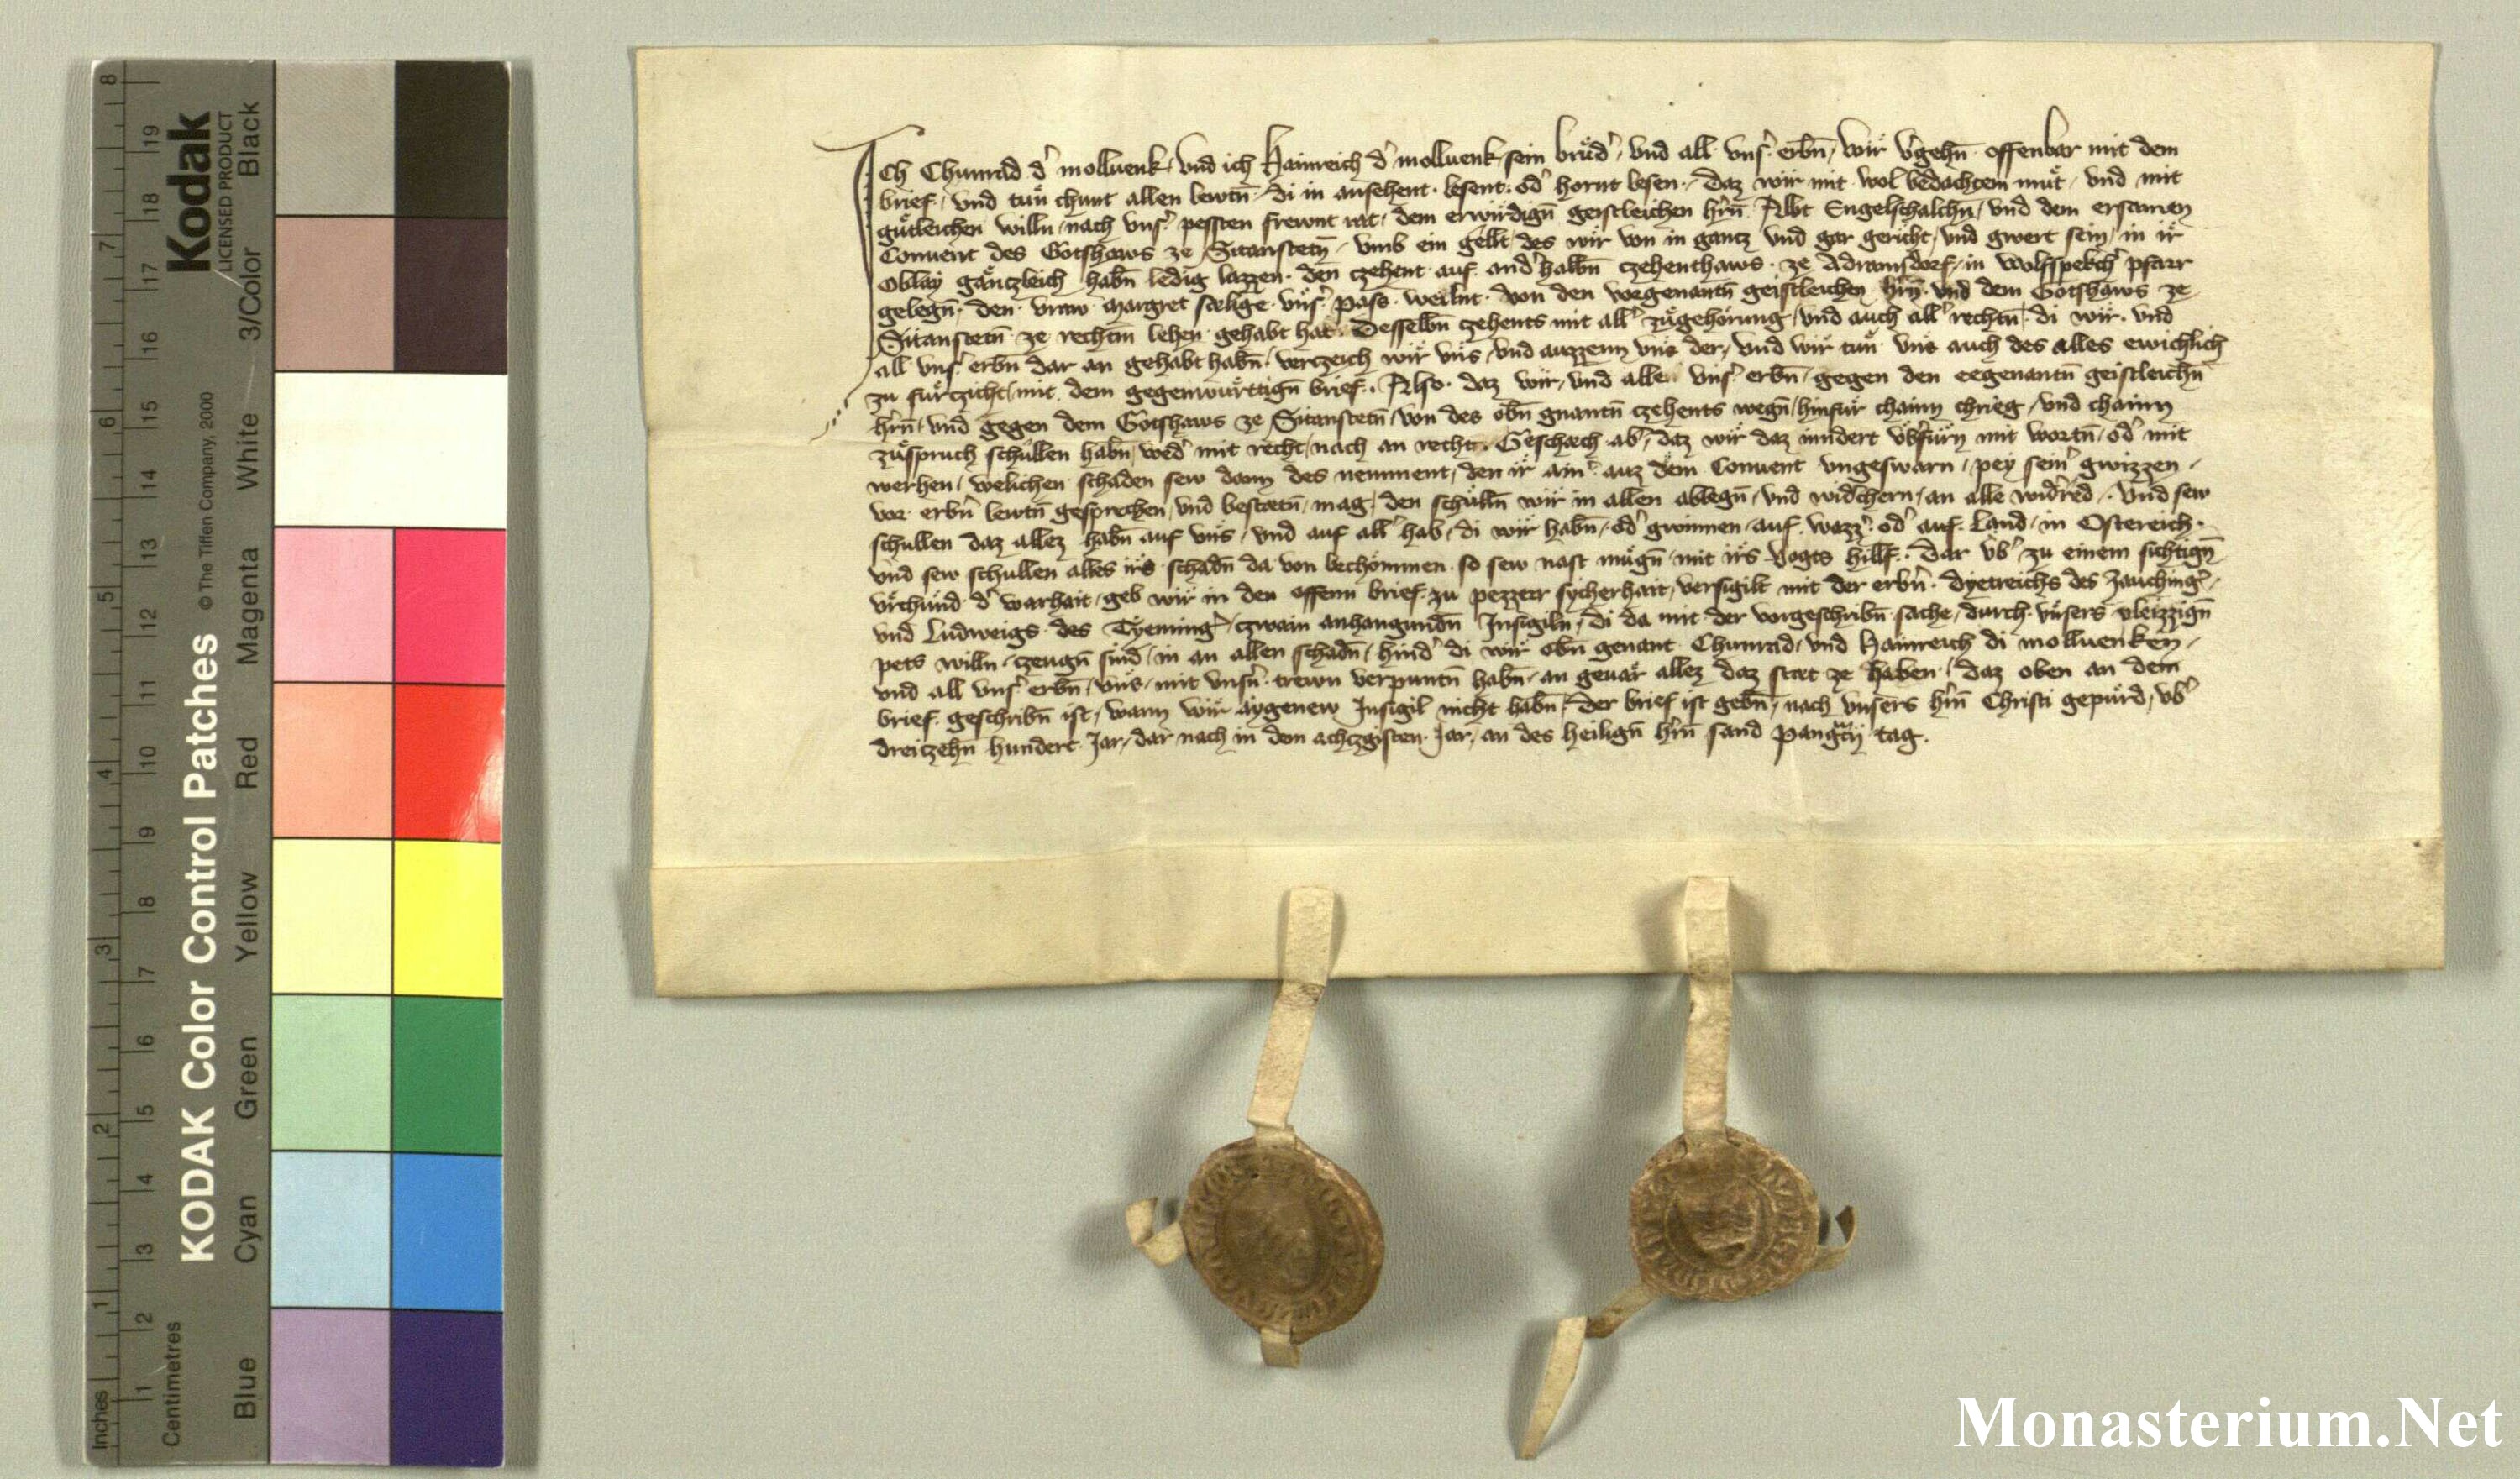 Ich Chunrad d' molluenk, vnd ich Hainreich d' molluenk sein brůd', vnd all vnſ' erbn̄, wir v'gehn̄ offenbar mit dem
brief, vnd tůn chunt allen lewtn̄, di in ansehent, lesent, od' hornt lesen, daz wir mit wol bedachtem můt, vnd mit
gůtleichen willn, nach vnſ' pessten frewnt rat, dem erwirdign̄ geistleichen hr̄n Abt Engelschalchn̄, vnd dem ersamen
Conuent des Gotshaws ze Sitanstetn̄, vmb ein gellt, des wir von in gantz vnd gar gericht, vnd gwert sein, in ir
Oblay gantzleich habn̄ ledig lazzen, den czehent auf and'halbn̄ czehenthaws ze Adramsdorf, in Wolfspekch' pfarr
gelegn̄, den vraw Margret sælige vnſ' pass weilnt von den vorgenantn̄ geistleichen hr̄n vnd dem Gotshaws ze
Sitanstetn̄ ze rechtm lehen gehabt hat. Desselbn̄ czehents mit all' zůgehorung, vnd auch all' rechtn̄, di wir, vnd
all vnſ' erbn̄ dar an gehabt habn̄, verczeich wir vns, vnd auzzenn vns der, vnd wir tůn vns auch des alles ewichlich
zu furczicht, mit dem gegenwurttign̄ brief. Also daz wir, vnd alle vnſ' erbn̄, gegen den egenantn̄ geistleichn̄
hr̄n, vnd gegen dem Gotshaws ze Sitanstetn̄, von des obn̄ gnantn̄ czehents wegn̄, hinfur chainn chrieg, vnd chainn
zůspruch schullen habn̄, wed' mit recht, nach an recht. Geschæch ab', daz wir daz inndert vb'fůrn mit wortn̄, od' mit
werhen, welichen schaden sew dann des nemment, den ir ain' auz dem Conuent vngeswarn, pey sein' gwizzen,
vor erbn̄ lewtn̄ gesprechen, vnd bestætn̄ mag, den schulln̄ wir in allen ablegn̄, vnd widchern, an alle wid'red. Vnd sew
schullen daz allez habn̄ auf vns, vnd auf all' hab, di wir habn̄, od' gwinnen, auf wazz' od' auf Land, in Ostereich,
vnd sew schullen alles irs schadn̄ da von bechömmen, so sew nast můgn̄, mit irs vogts hillf. Dar vb' zu einem sichtign̄
vrchund d' warhait, geb wir in den offenn brief zu pezzerr sycherhait, versigilt mit der erbn̄ Dyetreichs des Zauching',
vnd Ludweigs des Tyeming', czwain anhangundn̄ Insigiln, di da mit der vorgeschribn̄ sache, durch vnsers vleizzign̄
pets willn, czeugn̄ sind, in an allen schadn̄, hind' di wir obn̄ genant Chunrad, vnd Hainreich di molluenken,
vnd all vnſ' erbn̄, vns, mit vnsn̄ trewn verpuntn̄ habn̄, an geuar allez daz stæt ze haben, daz oben an dem
brief geschribn̄ ist, wann wir aygenew Insigil nicht habn̄. Der brief ist gebn̄, nach vnsers hr̄n Christi gepurd, vb'
dreiczehn̄ hundert Jar, dar nach in dem achczgisten Jar, an des heilign̄ hr̄n sand Pangrãcij tag.
KODAK Color Control Patches
© The Tiffen Company, 2000
Kodak
LICENSED PRODUCT
Blue Cyan Green Yellow Red Magenta White 3/Color Black
Inches 1 2 3 4 5 6 7 8
Centimetres 1 2 3 4 5 6 7 8 9 10 11 12 13 14 15 16 17 18 19
Monasterium.Net